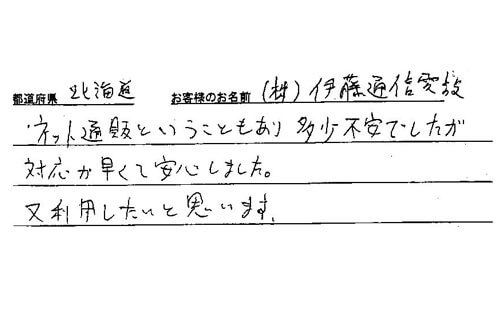 都道府県 北海道 お客様のお名前 (株)伊藤通信電設
ネット通販ということもあり 多少不安でしたが
対応が早くて安心しました。
又利用したいと思います。